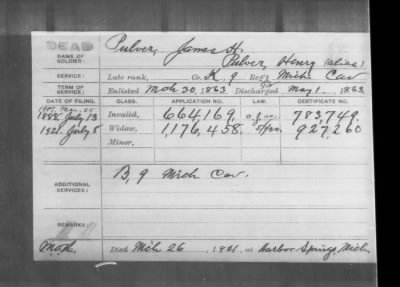 DEAD
NAME OF SOLDIER: Pulver, James H.
Pulver, Henry (alias)
SERVICE: Late rank, Co. K, 9 Reg't Mich Cav
TERM OF SERVICE: Enlisted Mch 30, 1863 Discharged May 1, 1863
DATE OF FILING. CLASS. APPLICATION NO. LAW. CERTIFICATE NO.
1888 July 13 Invalid, 664,169 783,749
1921 July 8 Widow, 1,176,458 927,260
Minor,
ADDITIONAL SERVICES: B, 9 Mich Cav.
REMARKS:
Died Mch 26, 1921, at Harbor Springs, Mich